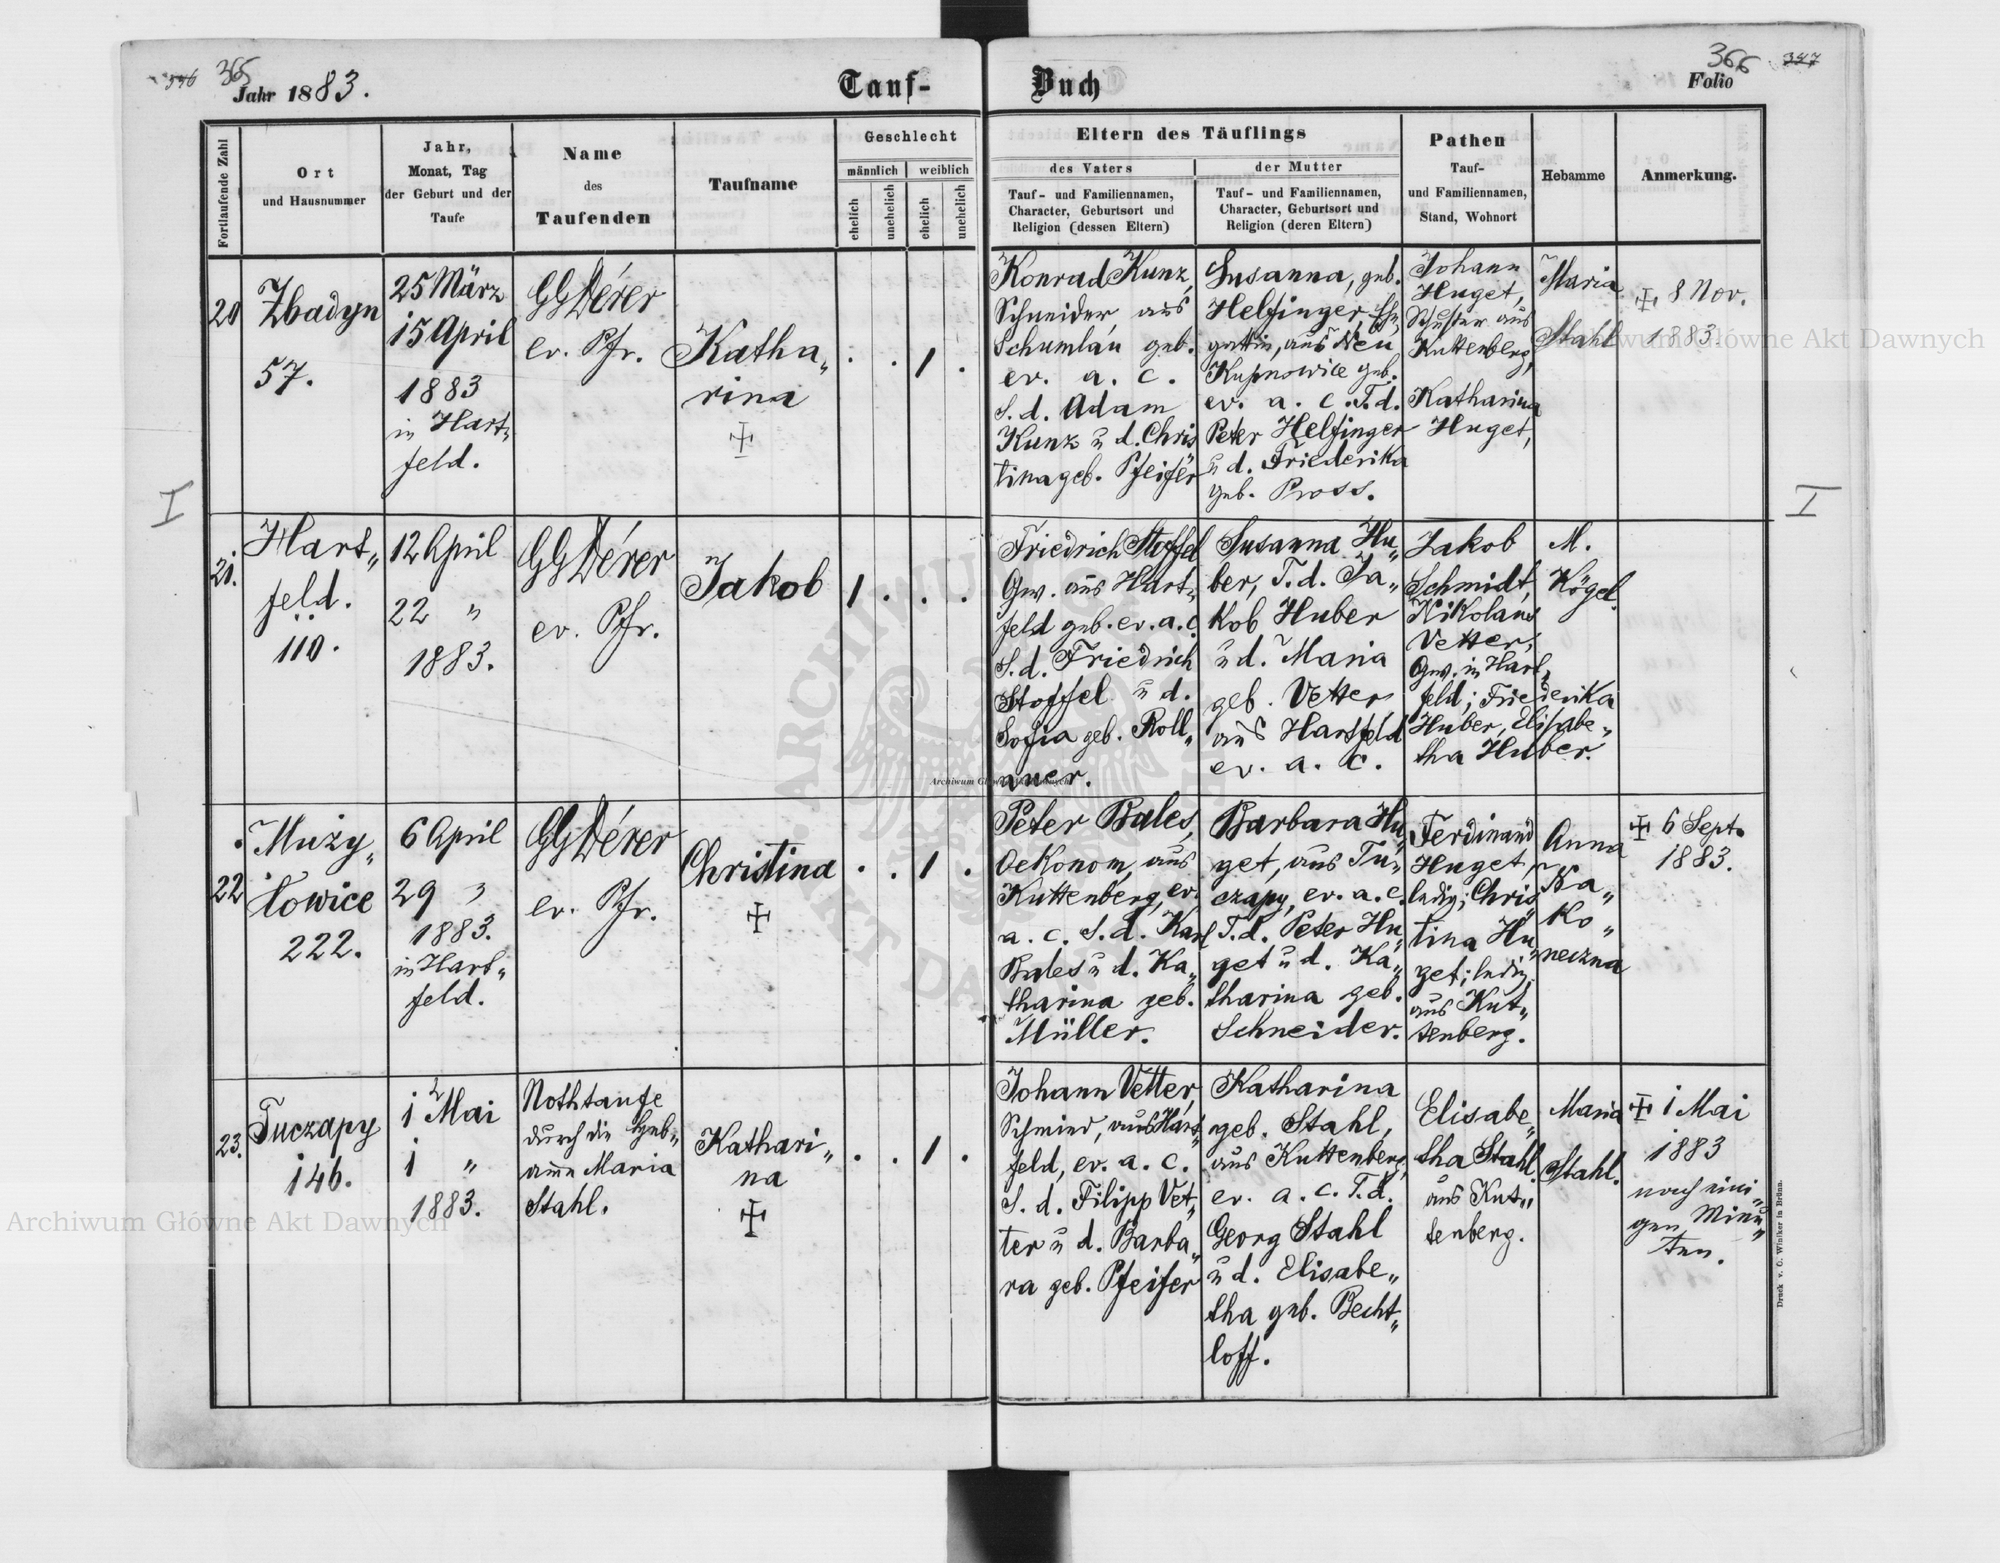 346 365
Jahr 1883.
Tauf-
Buch
366 347
Folio
Fortlaufende Zahl
Ort
und Hausnummer
Jahr,
Monat, Tag
der Geburt und der
Taufe
Name
des
Taufenden
Taufname
Geschlecht
männlich
weiblich
ehelich
unehelich
ehelich
unehelich
Eltern des Täuflings
des Vaters
Tauf- und Familiennamen,
Character, Geburtsort und
Religion (dessen Eltern)
der Mutter
Tauf- und Familiennamen,
Character, Geburtsort und
Religion (deren Eltern)
Pathen
Tauf-
und Familiennamen,
Stand, Wohnort
Hebamme
Anmerkung.
20
Zbadyn
57.
25 März
15 April
1883
in Hart„
feld.
GGDérer
ev. Pfr.
Katha„
rina
. . 1 .
Konrad Kunz,
Schneider aus
Schumlau geb.
ev. a. c.
S. d. Adam
Kunz u d. Chris
tina geb. Pfeifer
Susanna, geb.
Helfinger, Ehe„
gattin, aus Neu
Kupnowice geb.
ev. a. c. T. d.
Peter Helfinger
u d. Friederika
geb. Pross.
Johann
Huget,
Schuster aus
Kuttenberg,
Katharina
Huget,
Maria
Stahl
8 Nov.
1883.
I
I
21.
Hart„
feld.
110.
12 April
22 „
1883.
GGDérer
ev. Pfr.
Jakob
1 . . .
Friedrich Stoffel
Gw. aus Hart„
feld geb. ev. a. c.
S. d. Friedrich
Stoffel u d.
Sofia geb. Roll„
auer.
Susanna Hu„
ber, T. d. Ja„
kob Huber
u d. Maria
geb. Vetter
aus Hartfeld
ev. a. c.
Jakob
Schmidt,
Nikolaus
Vetter,
Gw. in Hart„
feld; Friederika
Huber, Elisabe„
tha Huber.
M.
Kögel.
22
Muży„
łowice
222.
6 April
29 „
1883.
in Hart„
feld.
GGDérer
ev. Pfr.
Christina
. . 1 .
Peter Bales,
Oekonom, aus
Kuttenberg, ev.
a. c. S. d. Karl
Bales u d. Ka„
tharina geb.
Müller.
Barbara Hu„
get, aus Tu„
czapy, ev. a. c.
T. d. Peter Hu„
get u d. Ka„
tharina geb.
Schneider.
Ferdinand
Huget,
ledig; Chris„
tina Hu„
get; ledig,
aus Kut„
tenberg.
Anna
Ka„
ko„
neczna
6 Sept.
1883.
23.
Tuczapy
146.
1 Mai
1 „
1883.
Nothtaufe
durch die Heb„
amme Maria
Stahl.
Kathari„
na
. . 1 .
Johann Vetter,
Schmied, aus Hart„
feld, ev. a. c.
S. d. Filipp Vet„
ter u d. Barba„
ra geb. Pfeifer
Katharina
geb. Stahl,
aus Kuttenberg,
ev. a. c. T. d.
Georg Stahl
u d. Elisabe„
tha geb. Becht„
loff.
Elisabe„
tha Stahl
aus Kut„
tenberg.
Maria
Stahl.
1 Mai
1883
nach eini„
gen Minu„
ten.
Druck v. C. Winiker in Brünn.
Archiwum Główne Akt Dawnych
Archiwum Główne Akt Dawnych
Archiwum Główne Akt Dawnych